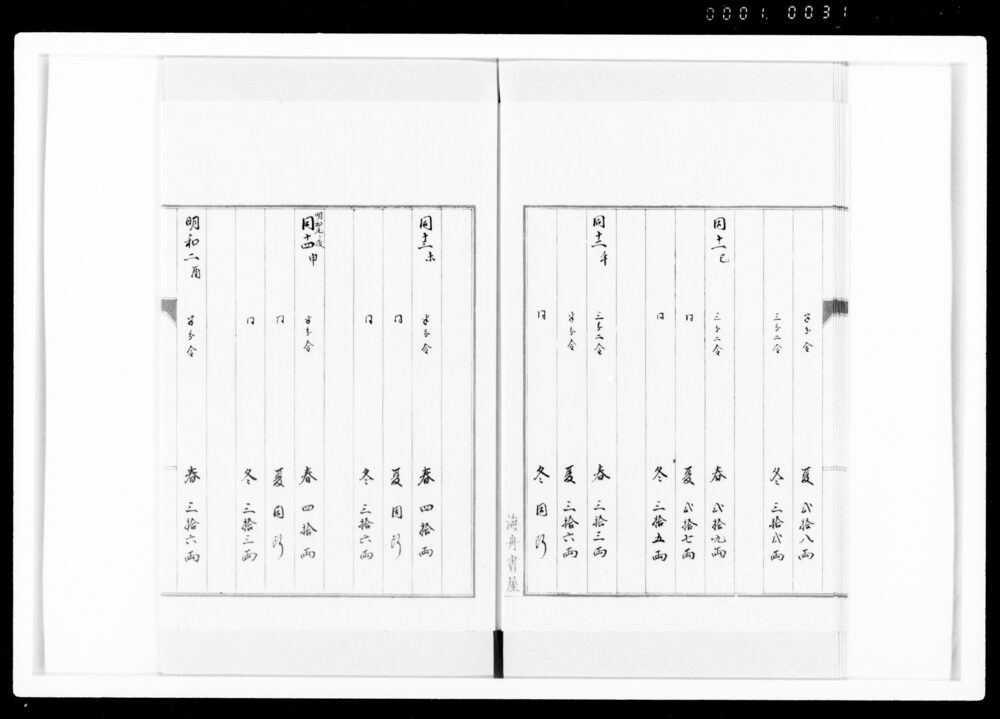 0001. 0031
半分金 夏 弐拾八両
三分二金 冬 三拾弐両
同十一巳 三分二金 春 弐拾九両
同 夏 弐拾七両
同 冬 三拾五両
同十二午 三分二金 春 三拾三両
半分金 夏 三拾六両
同 冬 同断
海舟書屋
同十三未 半分金 春 四拾両
同 夏 同断
同 冬 三拾六両
明和元ト改
同十四申 半分金 春 四拾両
同 夏 同断
同 冬 三拾三両
明和二酉 半分金 春 三拾六両